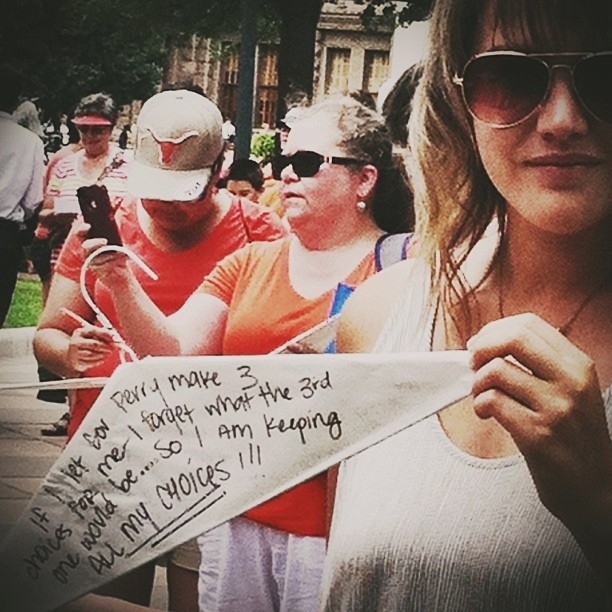 If I let Gov Perry make 3
choices for me - I forget what the 3rd
one would be... so I Am Keeping
All my CHOICES!!!